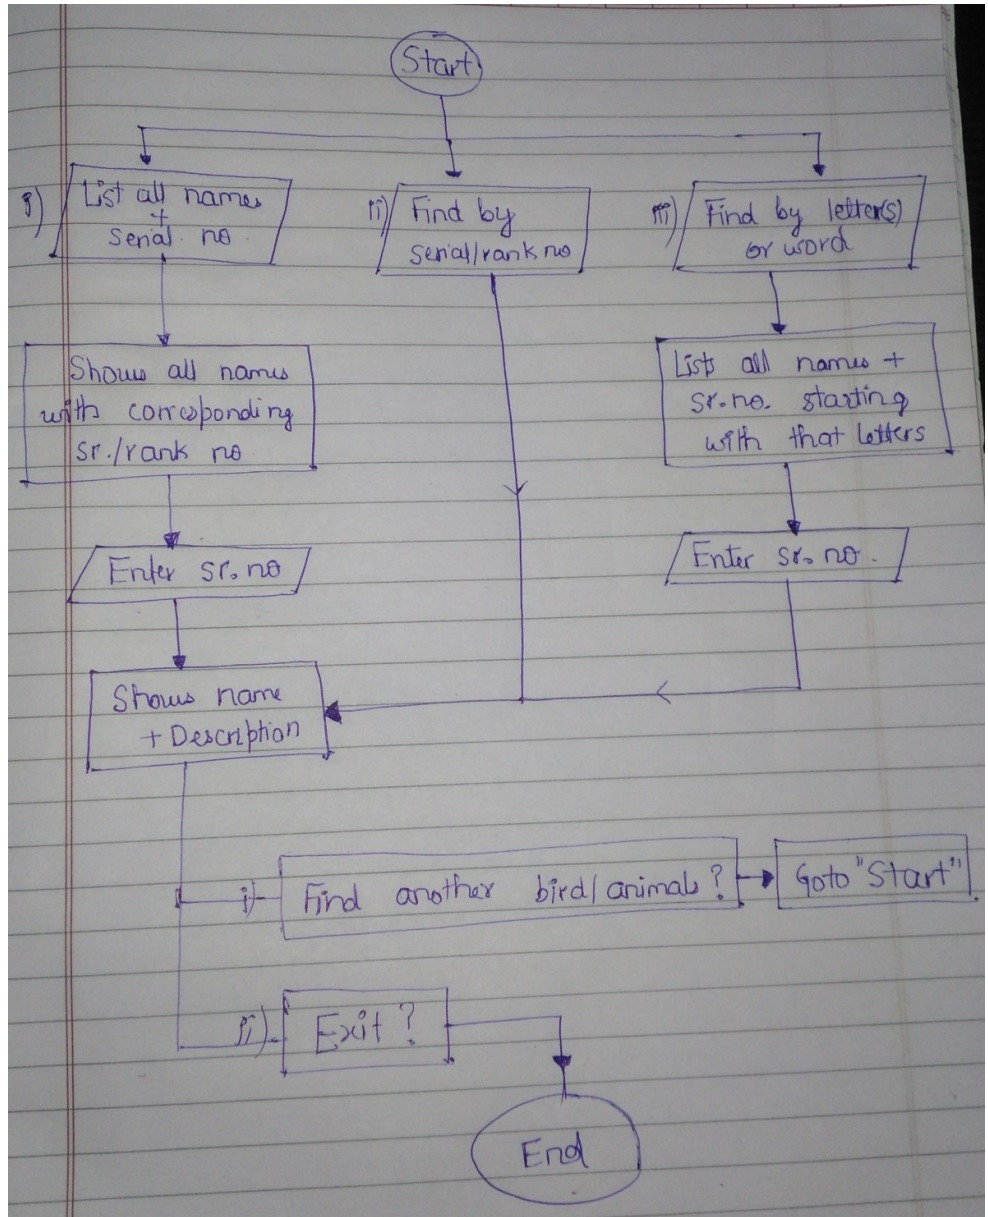 Start
i) List all names
+
serial no
ii) Find by
serial/rank no
iii) Find by letter(s)
or word
Shows all names
with corresponding
sr./rank no
Lists all names +
sr.no. starting
with that letters
Enter sr. no
Enter sr. no.
Shows name
+ Description
i) Find another bird/animals ?
Goto "Start"
ii). Exit ?
End